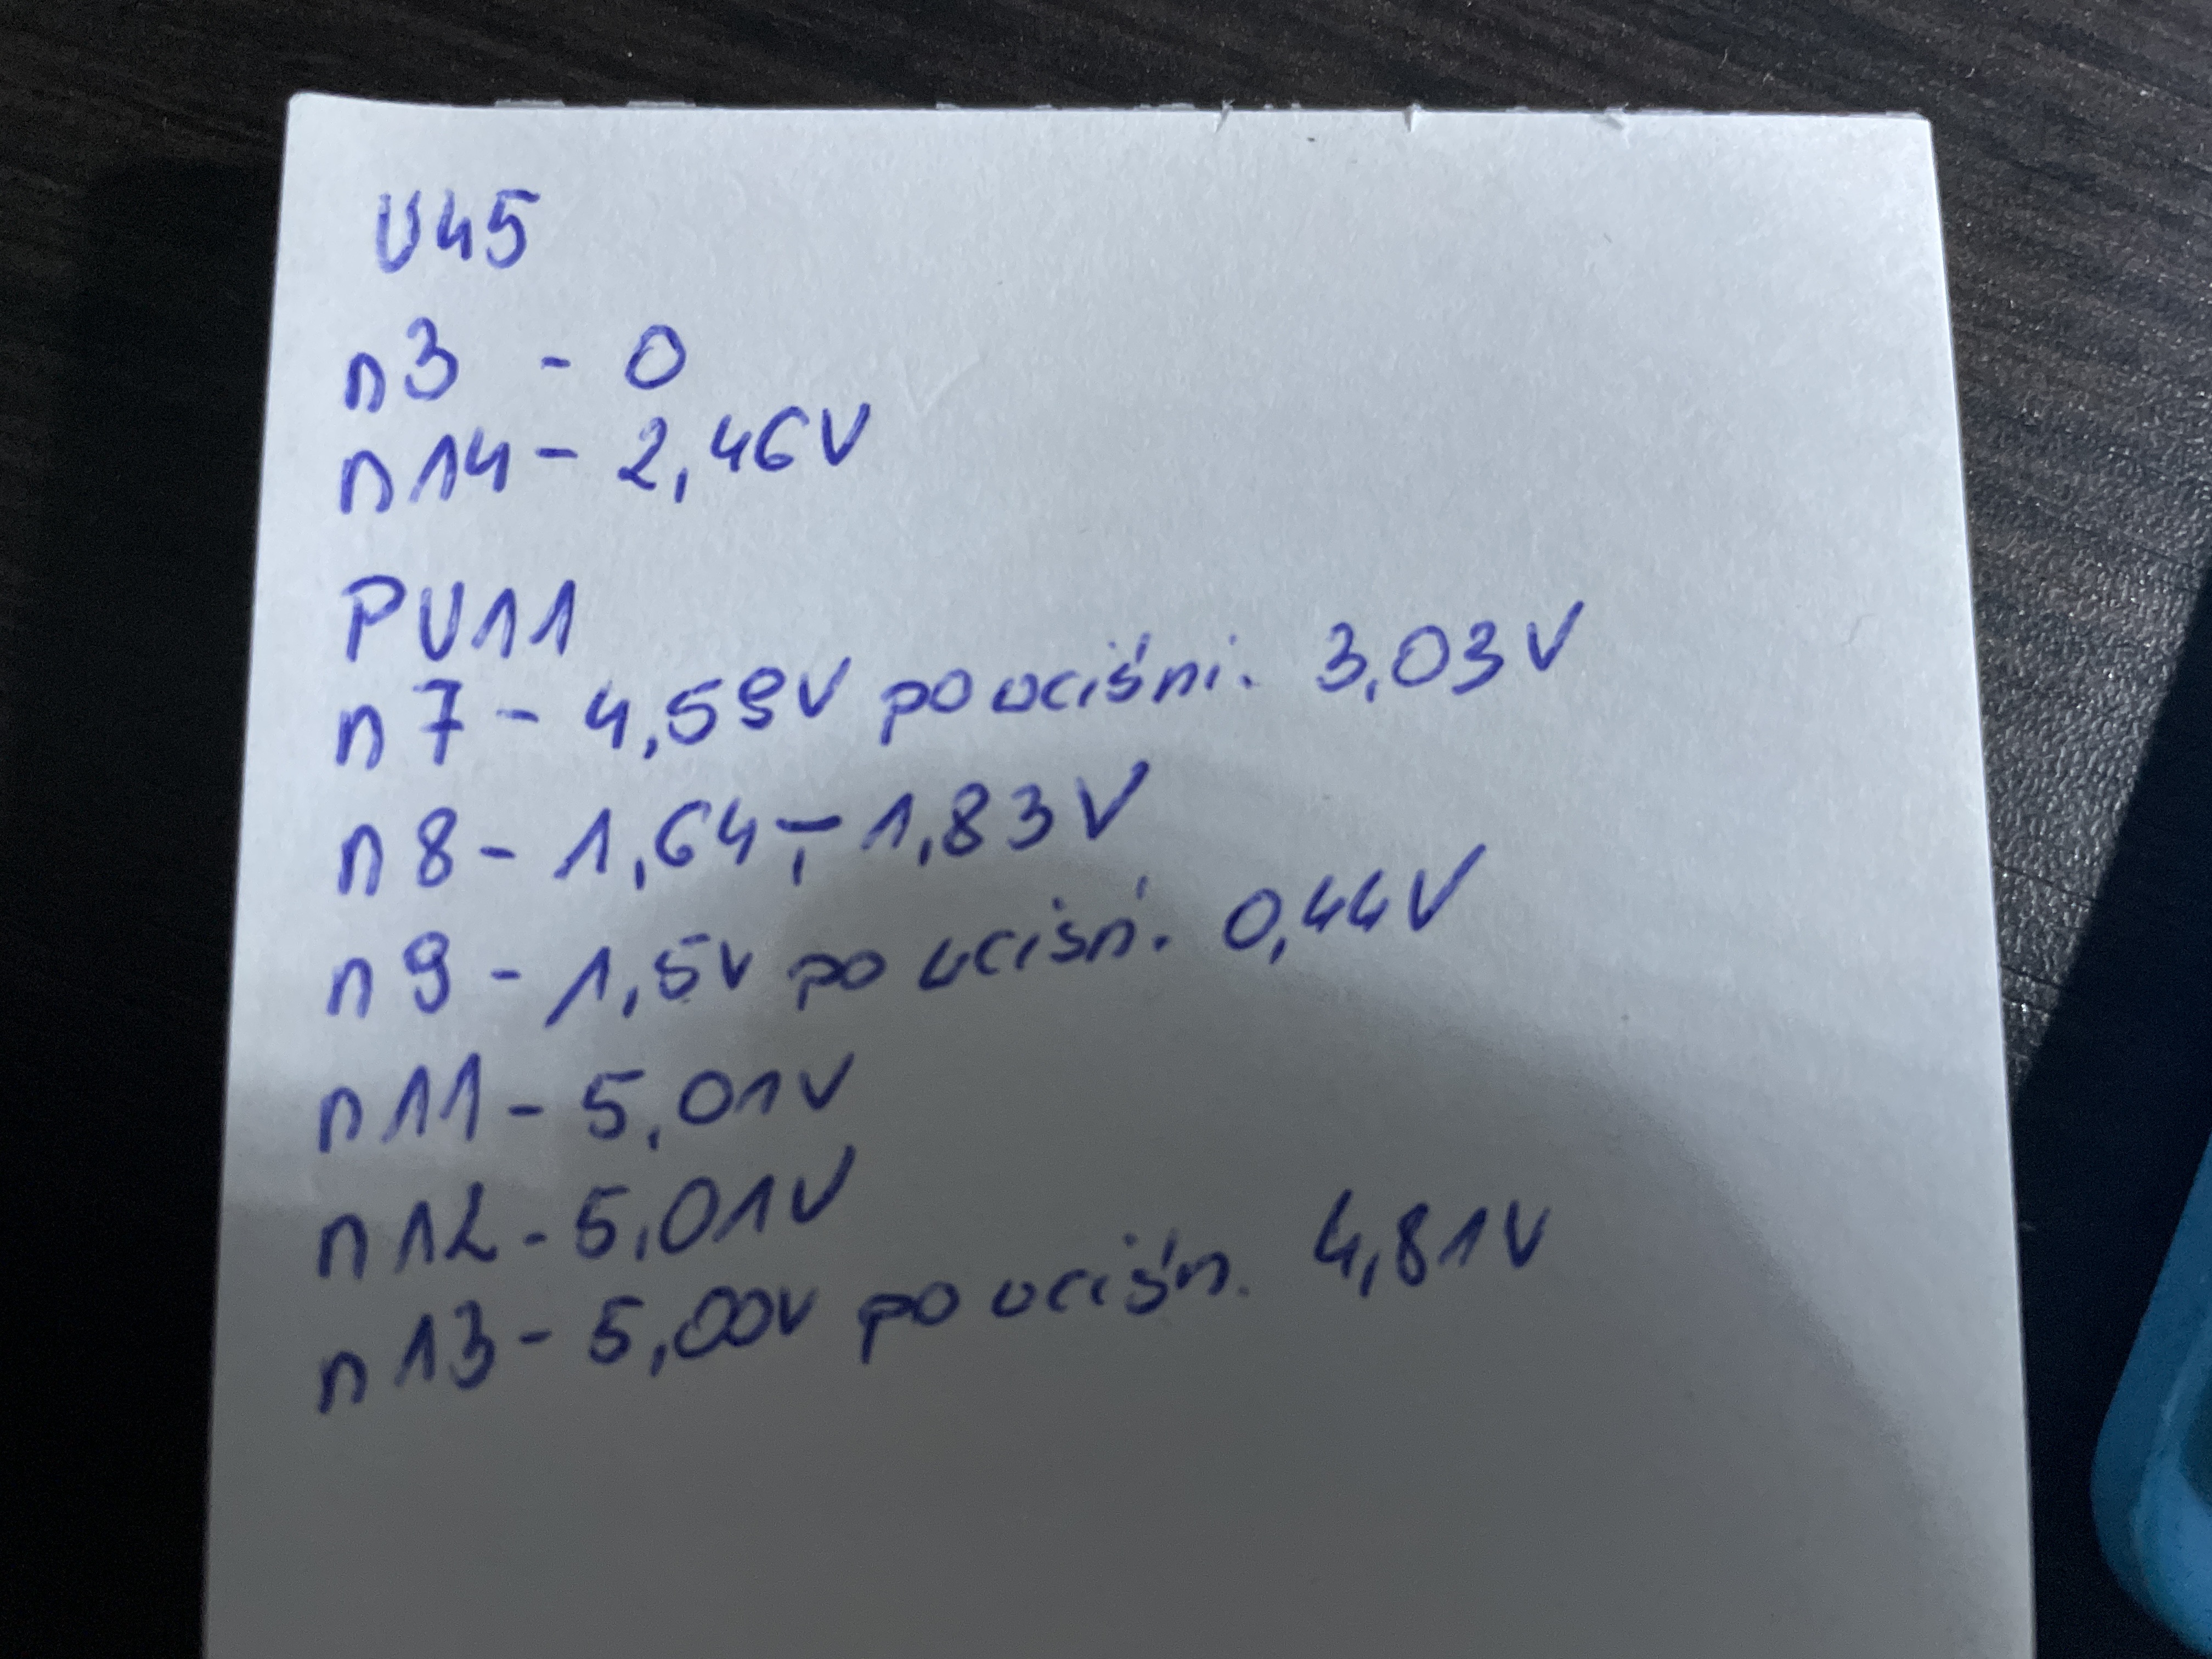 U45
n3 - 0
n14 - 2,46V
PU11
n7 - 4,59V po uciśni. 3,03V
n8 - 1,64 - 1,83V
n9 - 1,5V po uciśń. 0,44V
n11 - 5,01V
n12 - 5,01V
n13 - 5,00V po uciśn. 4,81V